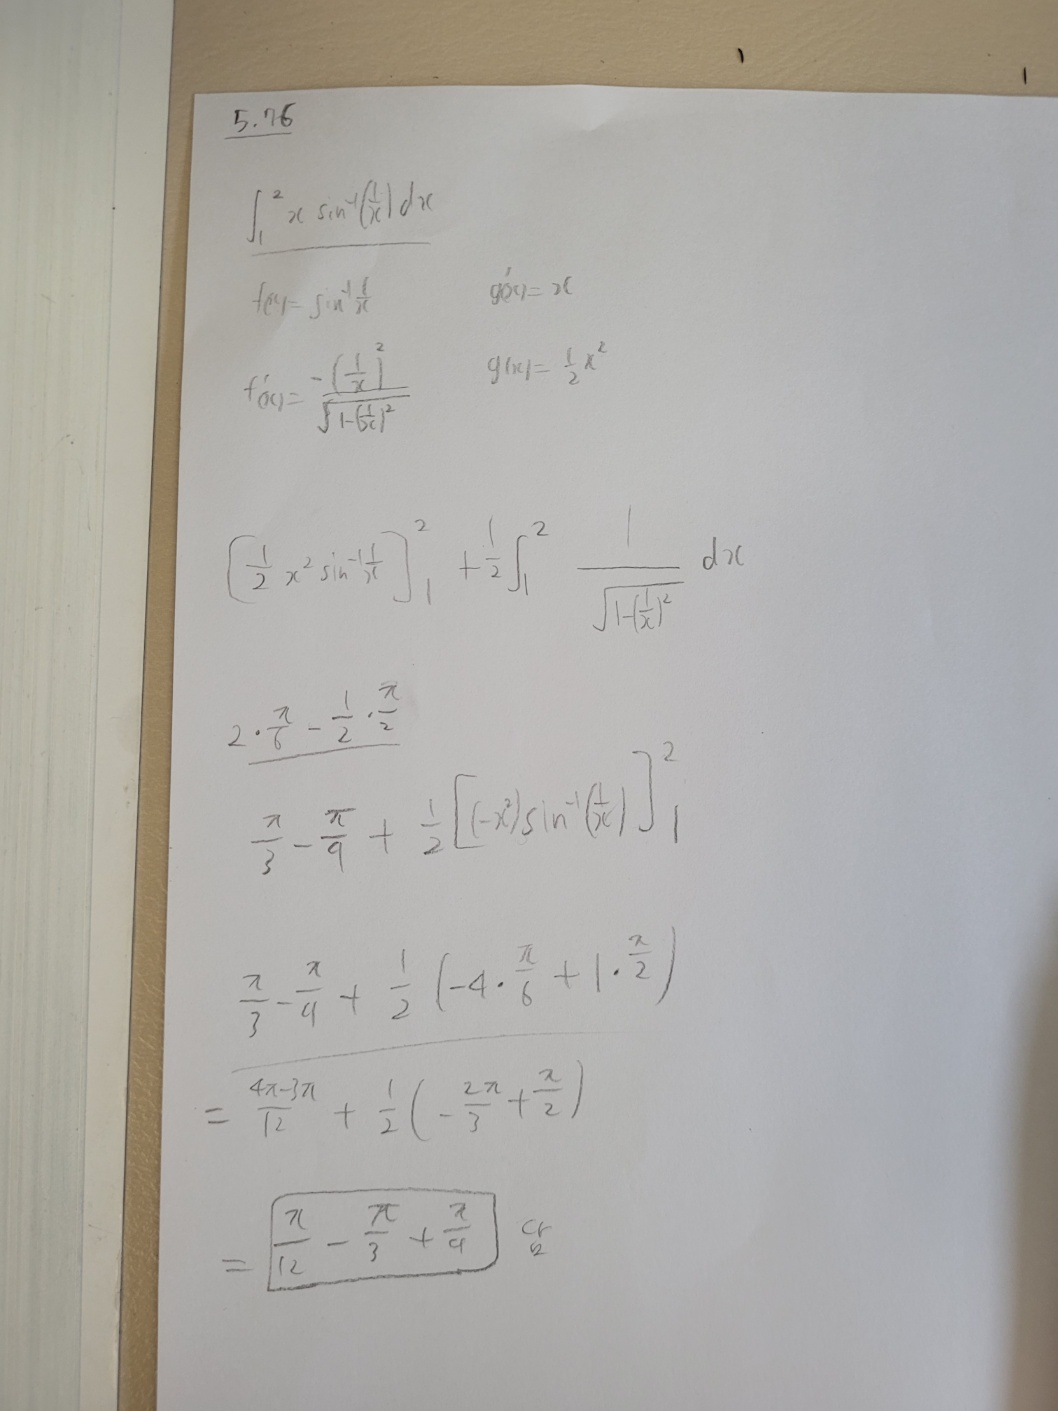 5.76
∫₁² x sin⁻¹(1/x) dx
f(x) = sin⁻¹ 1/x    g'(x) = x
f'(x) = -(1/x)² / √(1-(1/x)²)    g(x) = 1/2 x²
[1/2 x² sin⁻¹ 1/x]₁² + 1/2 ∫₁² 1/√(1-(1/x)²) dx
2·π/6 - 1/2·π/2
π/3 - π/4 + 1/2 [(-x²) sin⁻¹(1/x)]₁²
π/3 - π/4 + 1/2 (-4·π/6 + 1·π/2)
= (4π-3π)/12 + 1/2 (-2π/3 + π/2)
= π/12 - π/3 + π/4 답